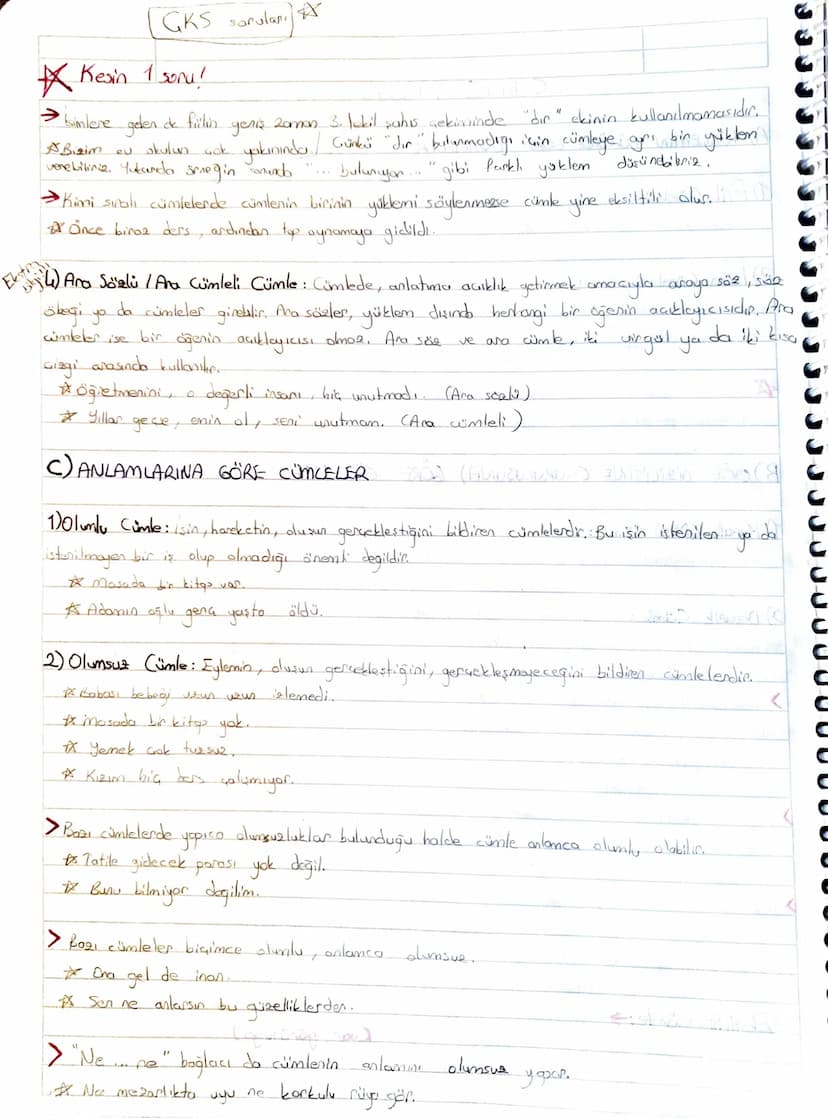 ÇKS soruları
Kesin 1 soru!
→ İsimlere gelen ek fiilin geniş zaman 3. tekil şahıs çekiminde "dır" ekinin kullanılmamasıdır.
☆ Bizim ev okulun çok yakınında / Çünkü "dır" bulunmadığı için cümleye ayrı bir yüklem
verebiliriz. Yukarıda örneğin sonunda "... bulunuyor..." gibi farklı yüklem düşünebiliriz.
→ Kimi sıralı cümlelerde cümlenin birinin yüklemi söylenmezse cümle yine eksiltili olur.
☆ Önce biraz ders, ardından top oynamaya gidildi.
Ekstra bilgi
4) Ara Sözlü / Ara Cümleli Cümle: Cümlede, anlatıma açıklık getirmek amacıyla araya söz, söz
öbeği ya da cümleler girebilir. Ara sözler, yüklem dışında herhangi bir öğenin açıklayıcısıdır. Ara
cümleler ise bir öğenin açıklayıcısı olmaz. Ara söz ve ara cümle, iki virgül ya da iki kısa
çizgi arasında kullanılır.
☆ Öğretmenini, o değerli insanı, hiç unutmadı. (Ara sözlü)
☆ Yıllar geçse, emin ol, seni unutmam. (Ara cümleli)
C) ANLAMLARINA GÖRE CÜMLELER
1) Olumlu Cümle: işin, hareketin, oluşun gerçekleştiğini bildiren cümlelerdir. Bu işin istenilen ya da
istenilmeyen bir iş olup olmadığı önemli değildir.
☆ Masada bir kitap var.
☆ Adamın oğlu genç yaşta öldü.
2) Olumsuz Cümle: Eylemin, oluşun gerçekleştiğini, gerçekleşmeyeceğini bildiren cümlelerdir.
☆ Babası bebeği uzun uzun izlemedi.
☆ masada bir kitap yok.
☆ Yemek çok tuzsuz.
☆ Kızım hiç ders çalışmıyor.
> Bazı cümlelerde yapıca olumsuzluklar bulunduğu halde cümle anlamca olumlu olabilir.
☆ Tatile gidecek parası yok değil.
☆ Bunu bilmiyor değilim.
> Bazı cümleler biçimce olumlu, anlamca olumsuz.
☆ Ona gel de inan.
☆ Sen ne anlarsın bu güzelliklerden.
> "Ne ... ne" bağlacı da cümlenin anlamını olumsuz yapar.
☆ Ne mezarlıkta uyu ne korkulu rüya gör.